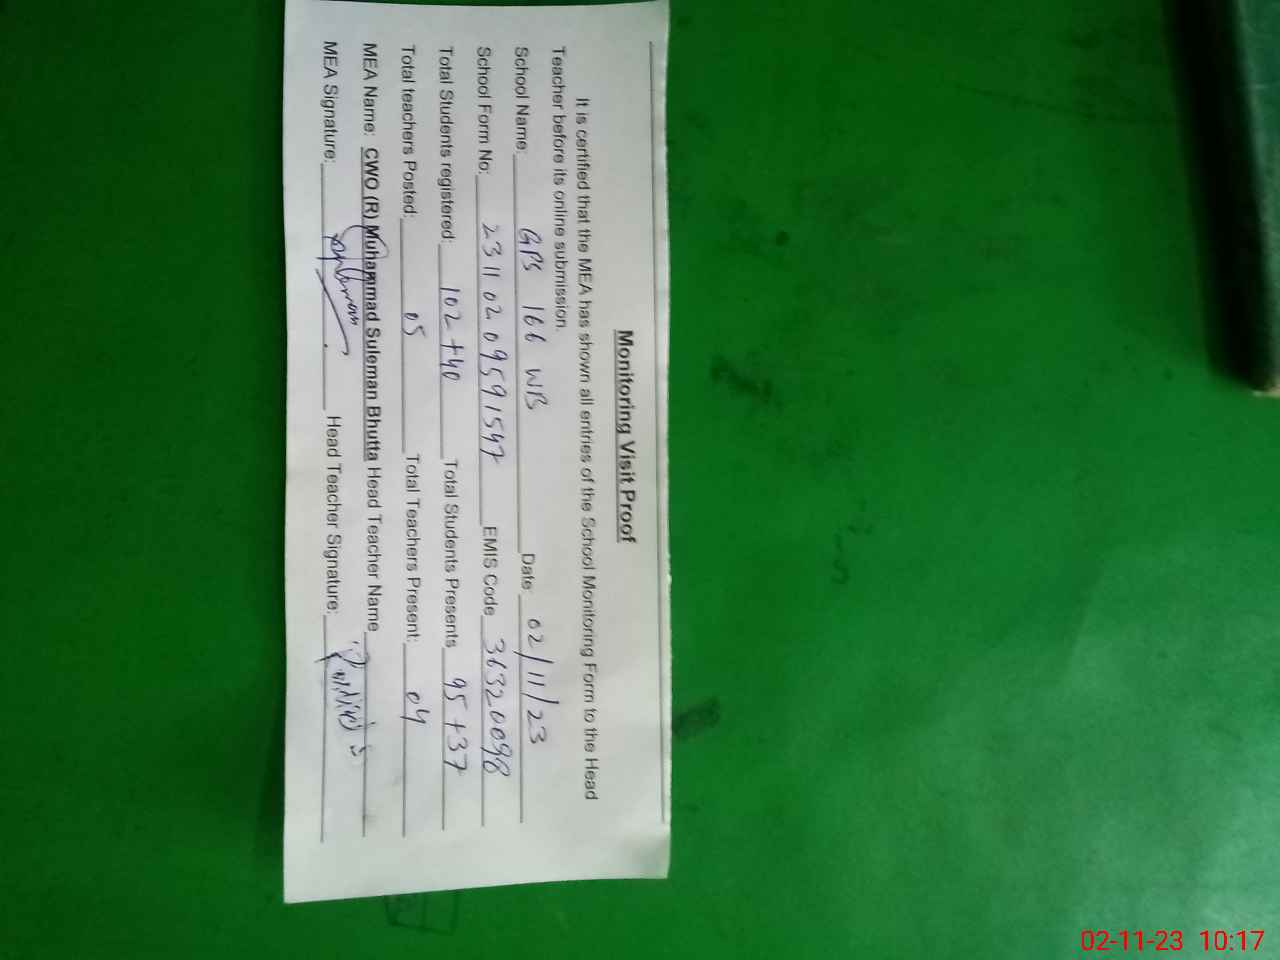 Monitoring Visit Proof
It is certified that the MEA has shown all entries of the School Monitoring Form to the Head
Teacher before its online submission.
School Name: GPS 166 WB Date: 02/11/23
School Form No: 23110209591547 EMIS Code 36320098
Total Students registered: 102+40 Total Students Presents 95+37
Total teachers Posted: 05 Total Teachers Present: 04
MEA Name: CWO (R) Muhammad Suleman Bhutta Head Teacher Name
MEA Signature: Head Teacher Signature:
02-11-23 10:17